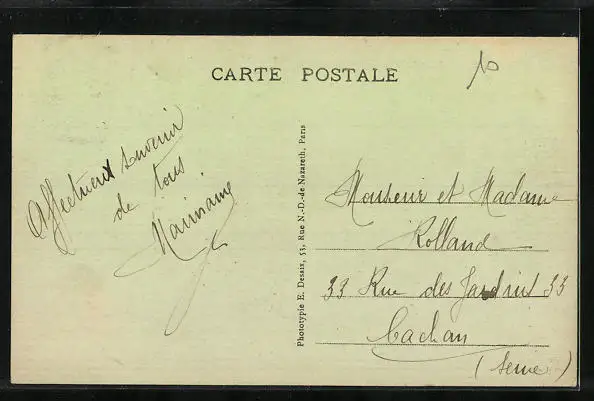 CARTE POSTALE
10
Affectueux souvenir
de tous
Phototypie E. Desaix, 53, Rue N.-D.-de Nazareth, Paris
Monsieur et Madame
Rolland
33 Rue des Jardins 33
Cachan
(Seine)